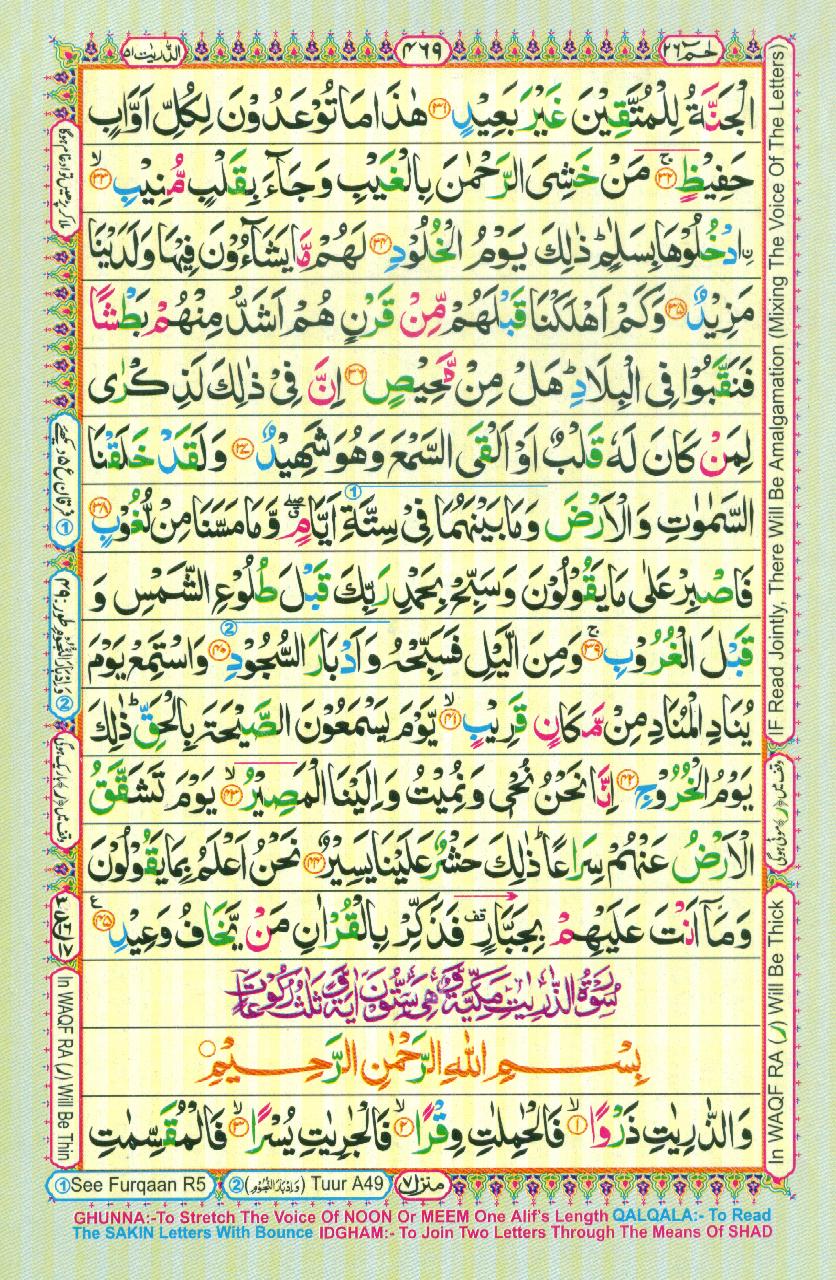 الذريت ٥١
٤٦٩
حم ٢٦
الْجَنَّةُ لِلْمُتَّقِيْنَ غَيْرَ بَعِيْدٍ ﴿٣١﴾ هٰذَا مَا تُوْعَدُوْنَ لِكُلِّ اَوَّابٍ
حَفِيْظٍ ﴿٣٢﴾ مَنْ خَشِىَ الرَّحْمٰنَ بِالْغَيْبِ وَجَآءَ بِقَلْبٍ مُّنِيْبِ ﴿٣٣﴾
نِادْخُلُوْهَا بِسَلٰمٍ ؕ ذٰلِكَ يَوْمُ الْخُلُوْدِ ﴿٣٤﴾ لَهُمْ مَّا يَشَآءُوْنَ فِيْهَا وَلَدَيْنَا
مَزِيْدٌ ﴿٣٥﴾ وَكَمْ اَهْلَكْنَا قَبْلَهُمْ مِّنْ قَرْنٍ هُمْ اَشَدُّ مِنْهُمْ بَطْشًا
فَنَقَّبُوْا فِى الْبِلَادِ ؕ هَلْ مِنْ مَّحِيْصٍ ﴿٣٦﴾ اِنَّ فِىْ ذٰلِكَ لَذِكْرٰى
لِمَنْ كَانَ لَهٗ قَلْبٌ اَوْ اَلْقَى السَّمْعَ وَهُوَ شَهِيْدٌ ﴿٣٧﴾ وَلَقَدْ خَلَقْنَا
السَّمٰوٰتِ وَالْاَرْضَ وَمَا بَيْنَهُمَا فِىْ سِتَّةِ اَيَّامٍ ۖ وَّمَا مَسَّنَا مِنْ لُّغُوْبٍ ﴿٣٨﴾
فَاصْبِرْ عَلٰى مَا يَقُوْلُوْنَ وَسَبِّحْ بِحَمْدِ رَبِّكَ قَبْلَ طُلُوْعِ الشَّمْسِ وَ
قَبْلَ الْغُرُوْبِ ﴿٣٩﴾ وَمِنَ الَّيْلِ فَسَبِّحْهُ وَاَدْبَارَ السُّجُوْدِ ﴿٤٠﴾ وَاسْتَمِعْ يَوْمَ
يُنَادِ الْمُنَادِ مِنْ مَّكَانٍ قَرِيْبٍ ﴿٤١﴾ يَّوْمَ يَسْمَعُوْنَ الصَّيْحَةَ بِالْحَقِّ ؕ ذٰلِكَ
يَوْمُ الْخُرُوْجِ ﴿٤٢﴾ اِنَّا نَحْنُ نُحْىٖ وَنُمِيْتُ وَاِلَيْنَا الْمَصِيْرُ ﴿٤٣﴾ يَوْمَ تَشَقَّقُ
الْاَرْضُ عَنْهُمْ سِرَاعًا ؕ ذٰلِكَ حَشْرٌ عَلَيْنَا يَسِيْرٌ ﴿٤٤﴾ نَحْنُ اَعْلَمُ بِمَا يَقُوْلُوْنَ
وَمَآ اَنْتَ عَلَيْهِمْ بِجَبَّارٍ قف فَذَكِّرْ بِالْقُرْاٰنِ مَنْ يَّخَافُ وَعِيْدِ ﴿٤٥﴾
سُوْرَةُ الذّٰرِيٰتِ مَكِّيَّةٌ وَّهِىَ سِتُّوْنَ اٰيَةً وَّثَلٰثُ رُكُوْعَاتٍ
بِسْمِ اللهِ الرَّحْمٰنِ الرَّحِيْمِ
وَالذّٰرِيٰتِ ذَرْوًا ﴿١﴾ فَالْحٰمِلٰتِ وِقْرًا ﴿٢﴾ فَالْجٰرِيٰتِ يُسْرًا ﴿٣﴾ فَالْمُقَسِّمٰتِ
IF Read Jointly, There Will Be Amalgamation (Mixing The Voice Of The Letters)
وقف میں (ر) موٹی ہوگی
In WAQF RA (ر) Will Be Thick
ملا کر پڑھیں تو ادغام ہوگا
① فرقان ع ۵ دیکھئے
② وَاِدْبَارَ النُّجُوْمِ طور: ٤٩
وقف میں (ر) باریک ہوگی
In WAQF RA (ر) Will Be Thin
①See Furqaan R5
②(وَاِدْبَارَ النُّجُوْمِ) Tuur A49
منزل ٧
GHUNNA:-To Stretch The Voice Of NOON Or MEEM One Alif's Length QALQALA:- To Read
The SAKIN Letters With Bounce IDGHAM:- To Join Two Letters Through The Means Of SHAD